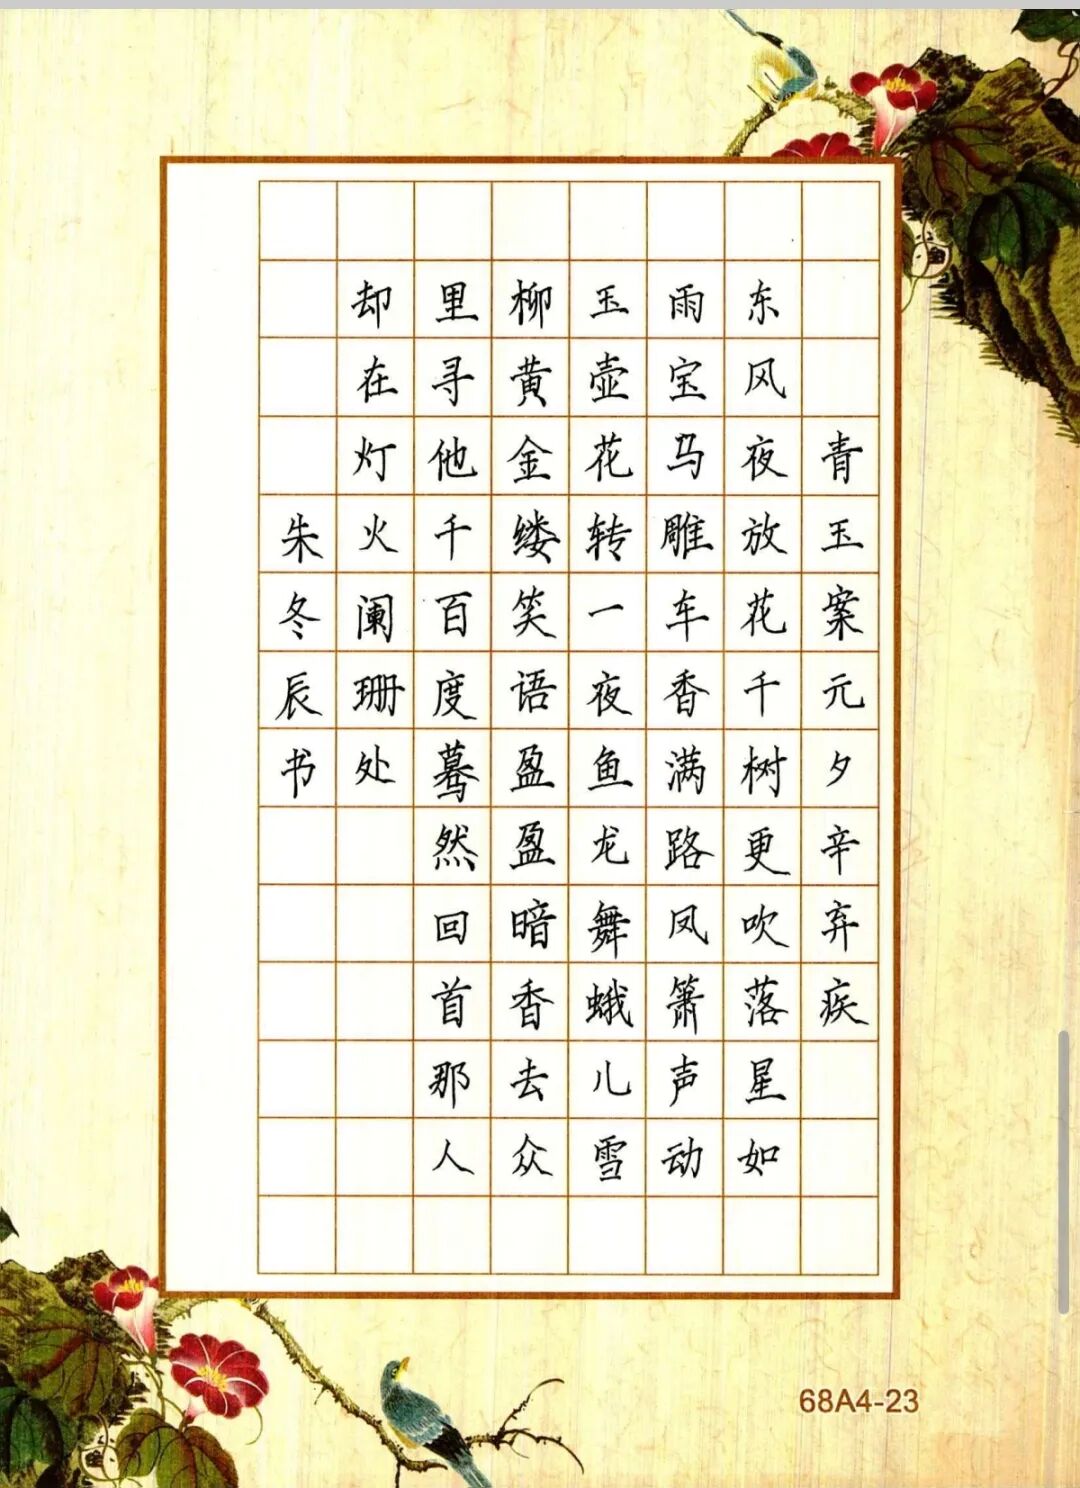 青玉案元夕辛弃疾
东风夜放花千树更吹落星如
雨宝马雕车香满路凤箫声动
玉壶花转一夜鱼龙舞蛾儿雪
柳黄金缕笑语盈盈暗香去众
里寻他千百度蓦然回首那人
却在灯火阑珊处
朱冬辰书
68A4-23